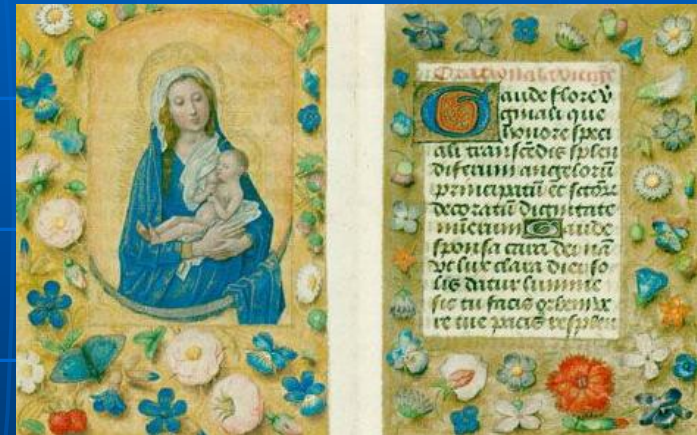 Gaude flore v
ginali que
honore speci
ali transcēdis splen
diferum angelorū
principatū et sctōr
decoratū dignitate
Gaude
sponsa cara dei nā
vt lux clara diei so
lis datur lumine
sic tu facis orbem ve
re tue pacis resplen